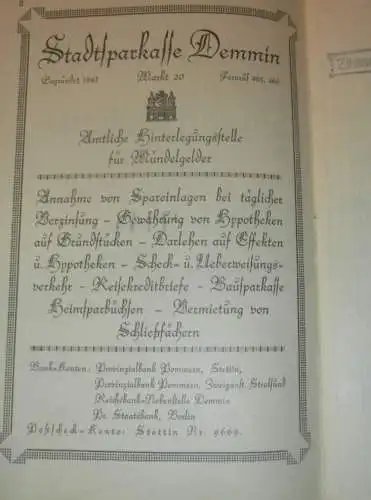 Stadtsparkasse Demmin
Gegründet 1841 Markt 20 Fernruf 465, 466
Amtliche Hinterlegungsstelle
für Mündelgelder
Annahme von Spareinlagen bei täglicher
Verzinsung - Gewährung von Hypotheken
auf Grundstücken - Darlehen auf Effekten
u. Hypotheken - Scheck- u. Ueberweisungs-
verkehr - Reisekreditbriefe - Bausparkasse
Heimsparbüchsen - Vermietung von
Schließfächern
Bank-Konten: Provinzialbank Pommern, Stettin,
Provinzialbank Pommern, Zweiganst. Stralsund
Reichsbank-Nebenstelle Demmin
Pr. Staatsbank, Berlin
Postscheck-Konto: Stettin Nr. 6666.